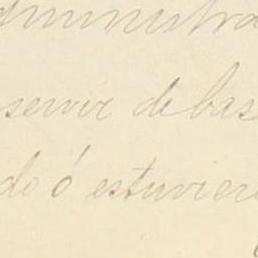 administra
servir de bas
do ó estuviere